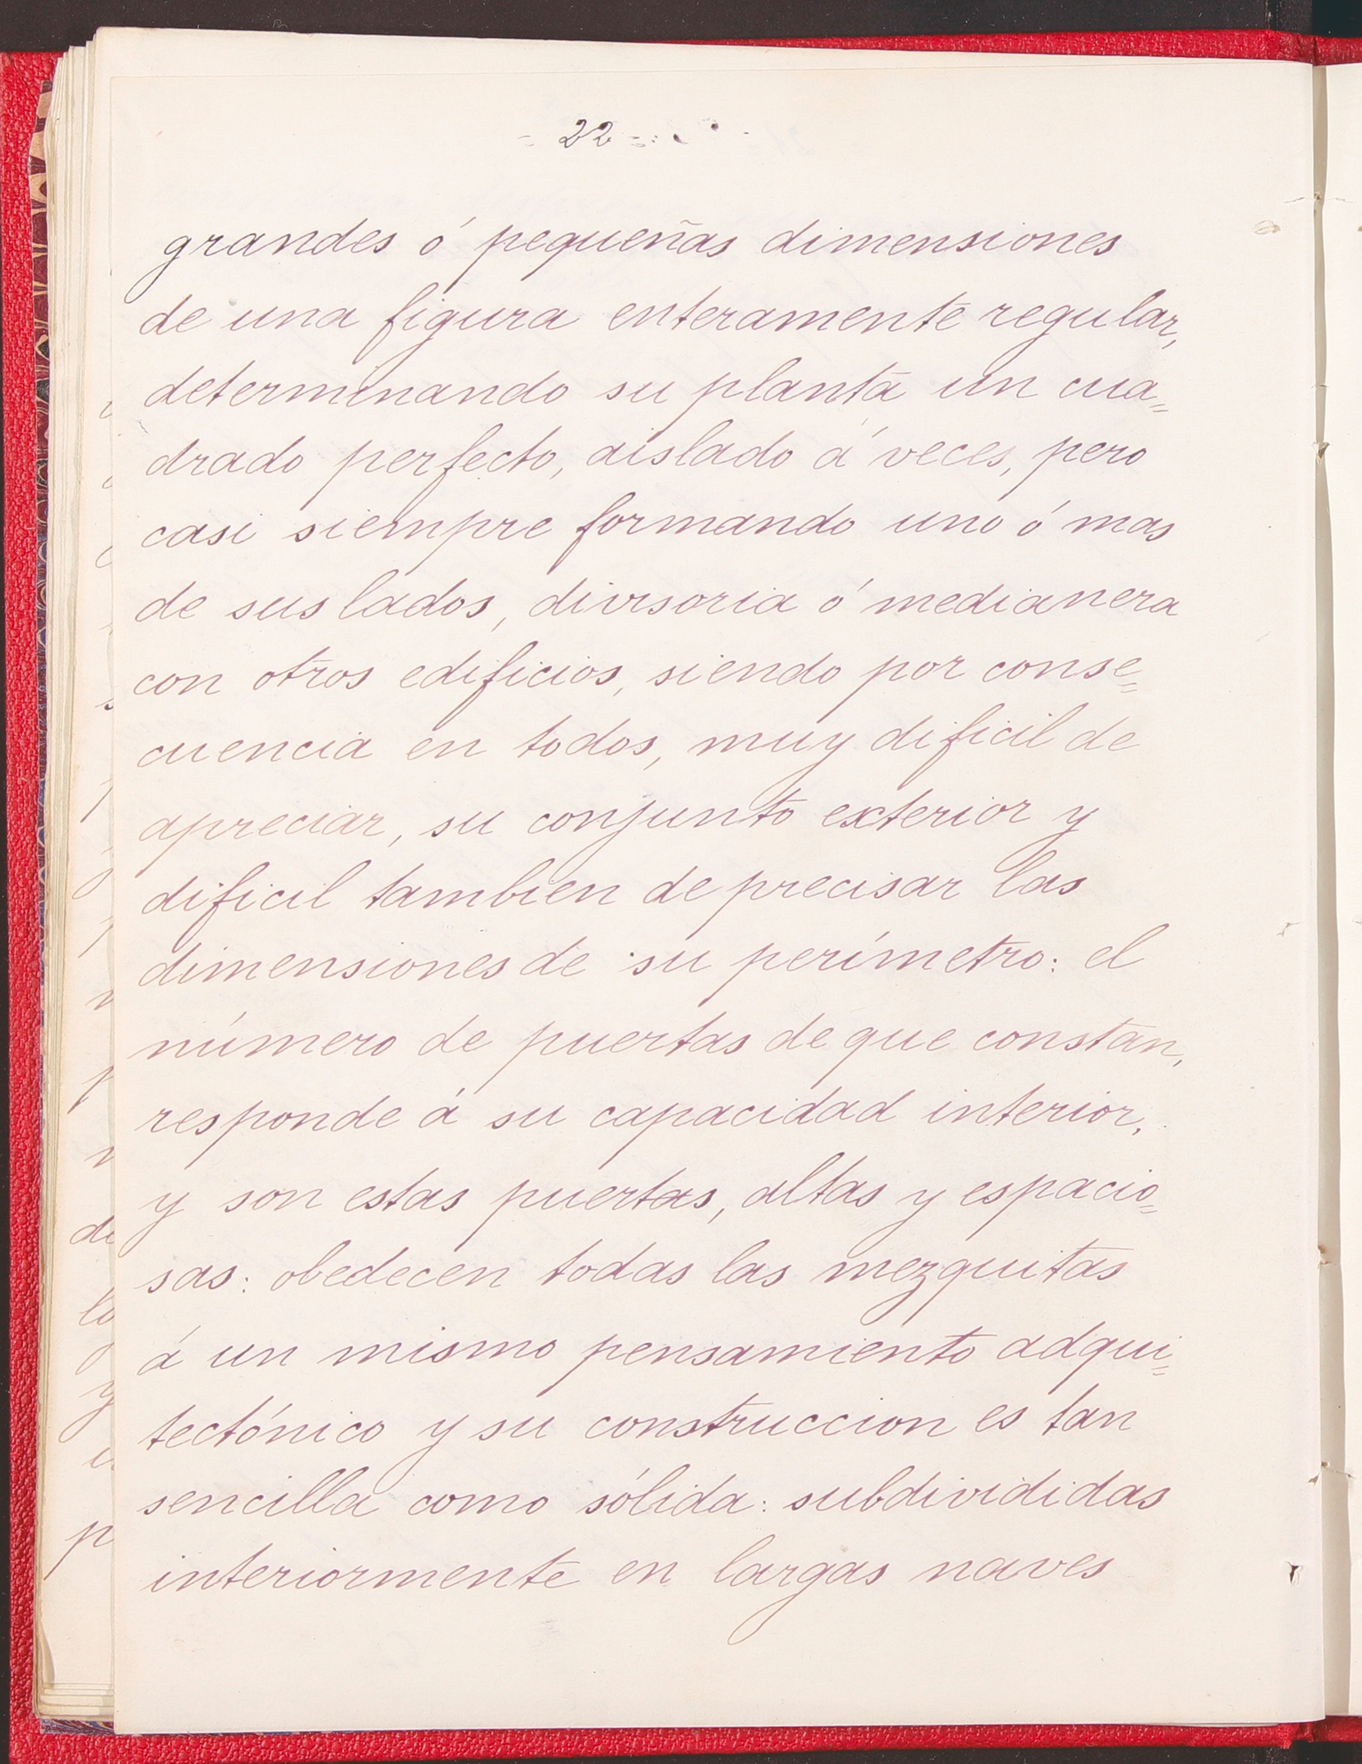 = 22 =
grandes ó pequeñas dimensiones
de una figura enteramente regular,
determinando su planta un cua=
drado perfecto, aislado á veces, pero
casi siempre formando uno ó mas
de sus lados, divisoria ó medianera
con otros edificios, siendo por conse=
cuencia en todos, muy dificil de
apreciar, su conjunto exterior y
dificil tambien de precisar las
dimensiones de su perímetro: el
número de puertas de que constan,
responde á su capacidad interior,
y son estas puertas, altas y espacio=
sas: obedecen todas las mezquitas
á un mismo pensamiento adqui=
tectónico y su construccion es tan
sencilla como sólida: subdivididas
interiormente en largas naves